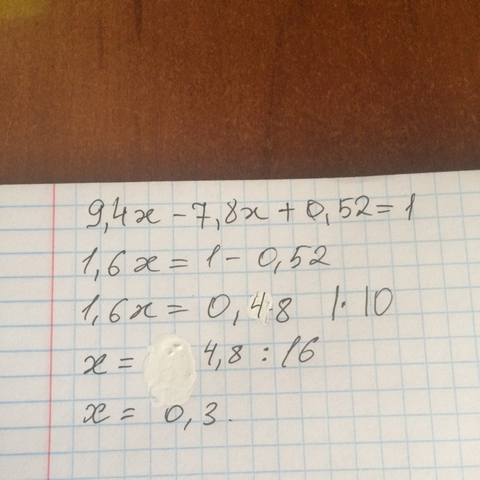 9,4x - 7,8x + 0,52 = 1
1,6x = 1 - 0,52
1,6x = 0,48 |· 10
x = 4,8 : 16
x = 0,3.